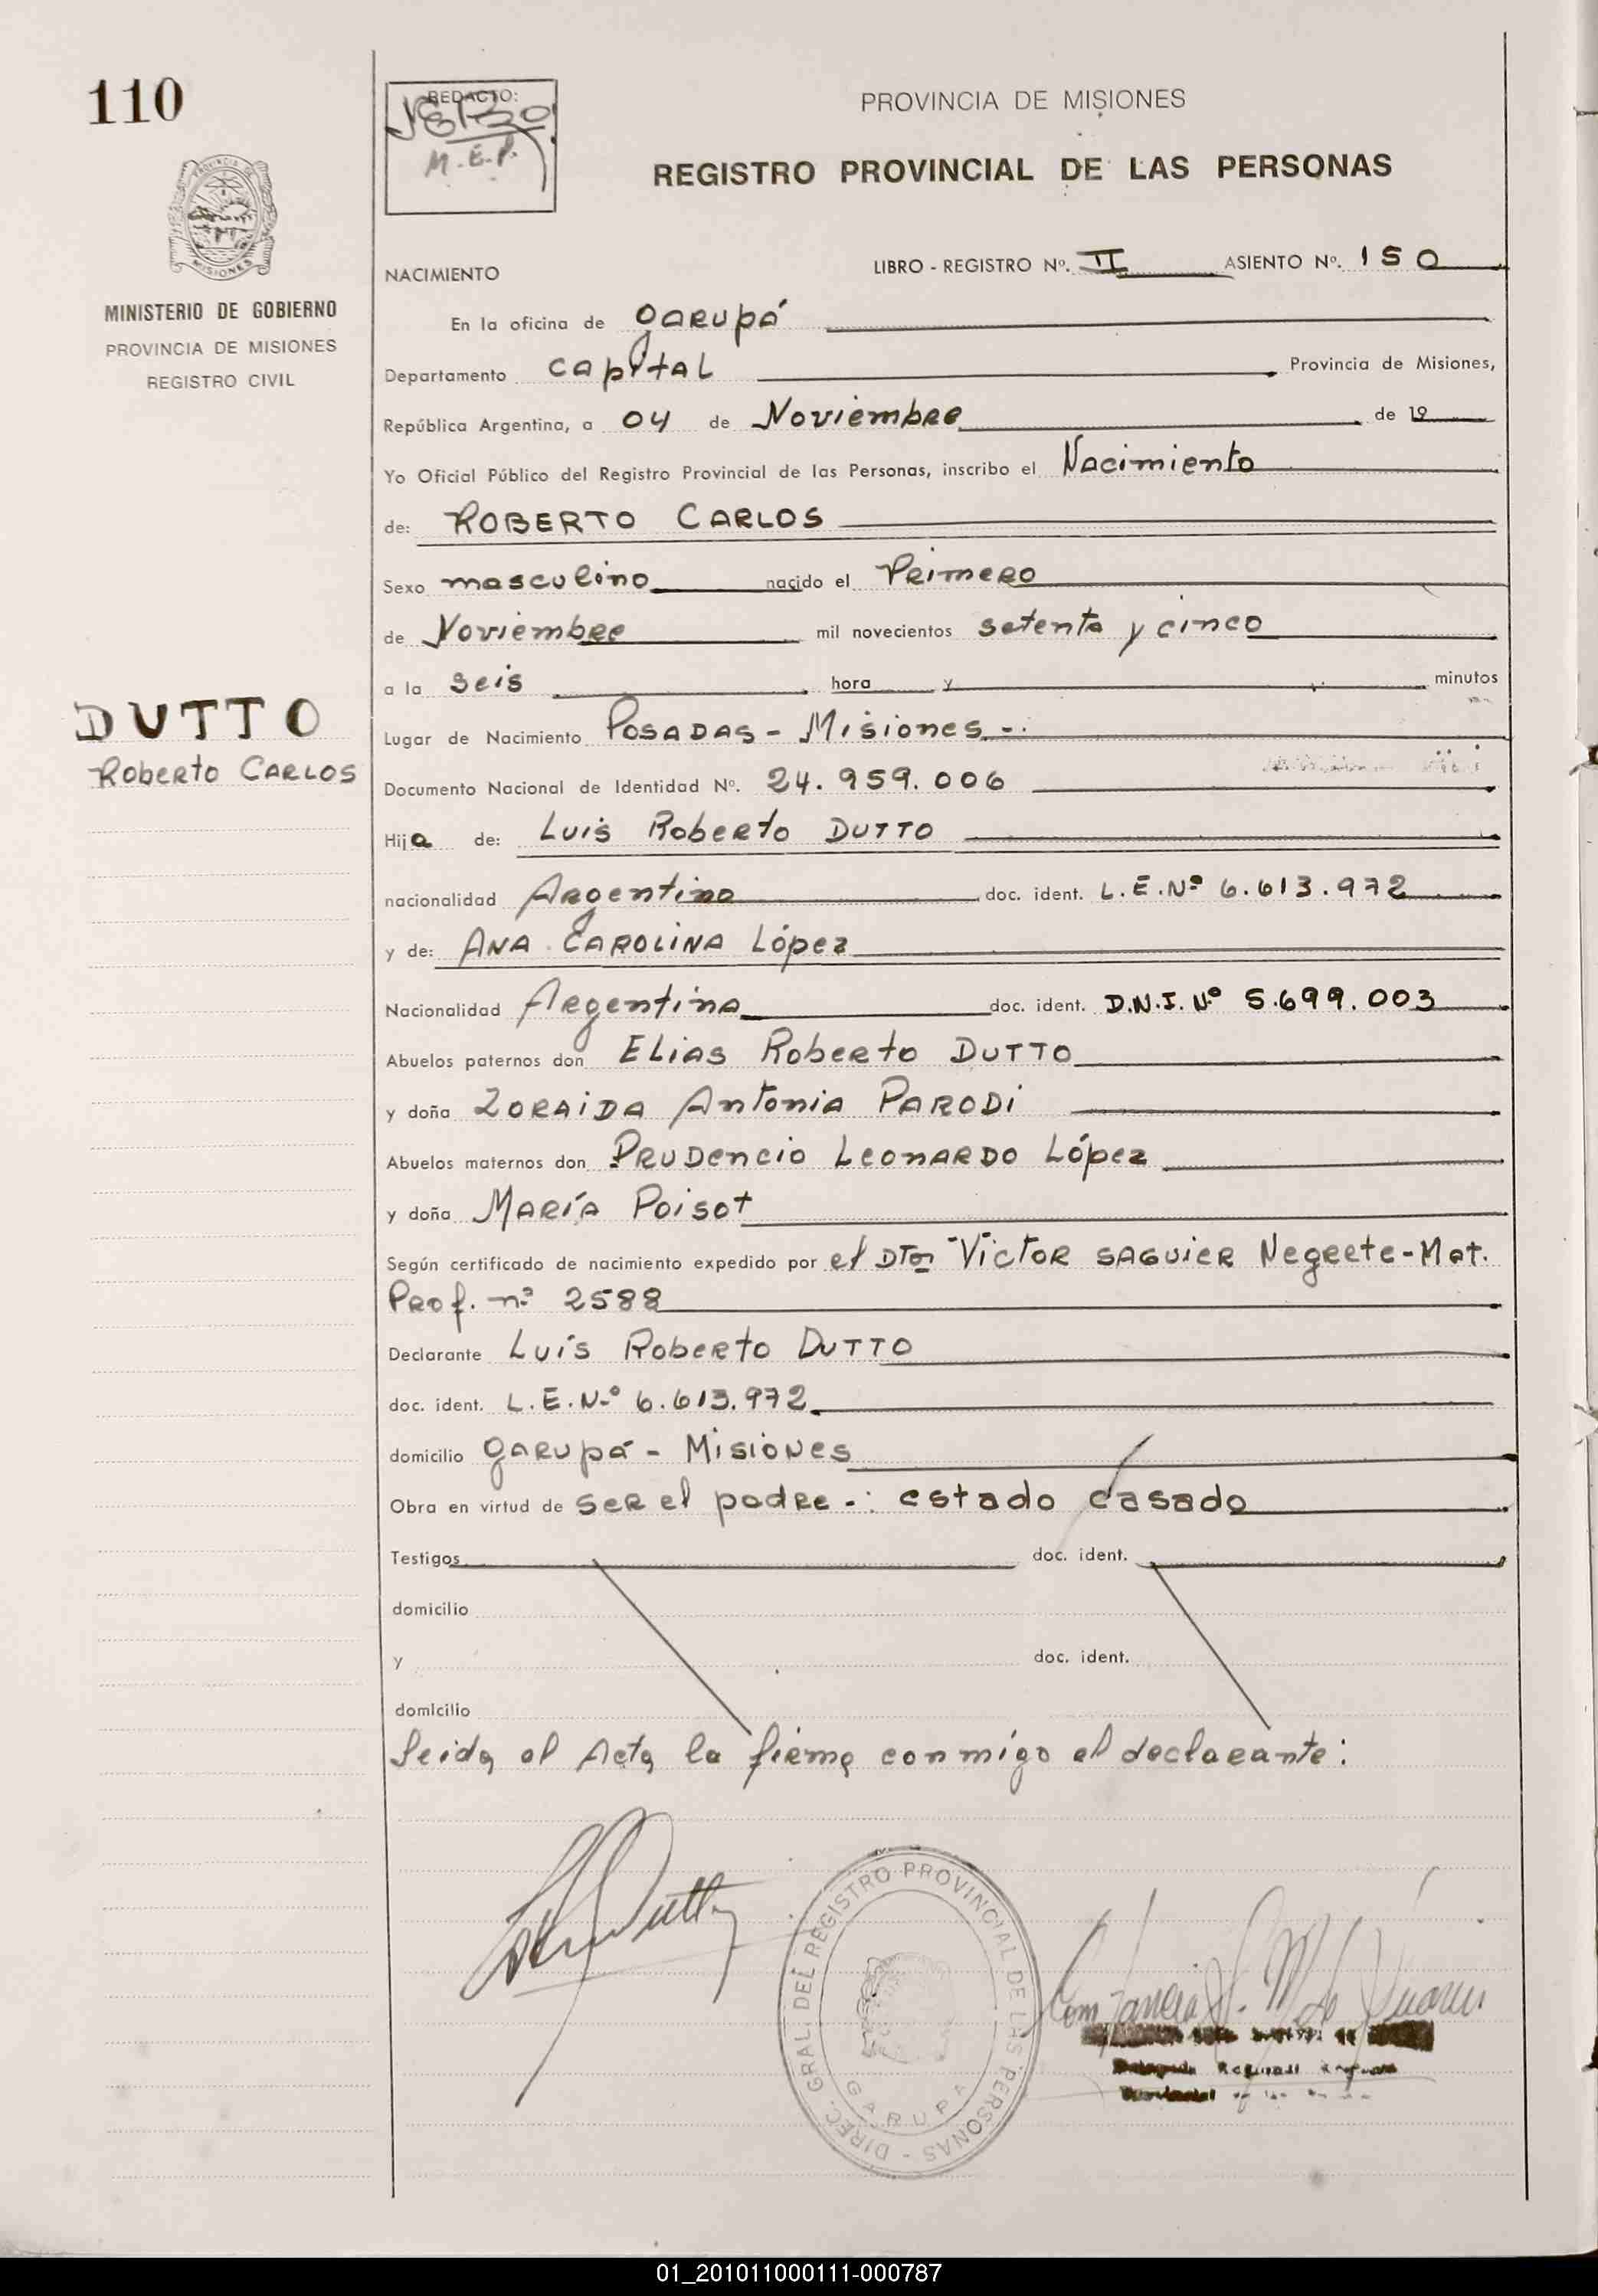 110
REDACTO:
M.E.P.
PROVINCIA DE MISIONES
REGISTRO PROVINCIAL DE LAS PERSONAS
MISIONES
MINISTERIO DE GOBIERNO
PROVINCIA DE MISIONES
REGISTRO CIVIL
NACIMIENTO LIBRO - REGISTRO Nº. II ASIENTO Nº. 150
En la oficina de Garupá
Departamento Capital Provincia de Misiones,
República Argentina, a 04 de Noviembre de 19
Yo Oficial Público del Registro Provincial de las Personas, inscribo el Nacimiento
de: ROBERTO CARLOS
Sexo masculino nacido el Primero
de Noviembre mil novecientos setenta y cinco
a la seis hora y minutos
DUTTO
Roberto CARLOS
Lugar de Nacimiento POSADAS - Misiones -.
Documento Nacional de Identidad Nº. 24.959.006
Hija de: Luis Roberto DUTTO
nacionalidad Argentina doc. ident. L.E.Nº 6.613.972
y de: ANA CAROLINA López
Nacionalidad Argentina doc. ident. D.N.I. Nº 5.699.003
Abuelos paternos don ELIAS Roberto DUTTO
y doña ZORAIDA Antonia PARODI
Abuelos maternos don PRUDencio LEONARDO López
y doña MARÍA Poisot
Según certificado de nacimiento expedido por el DTor Víctor SAGUIER Negrete-Mat.
Prof. nº 2588
Declarante Luís Roberto DUTTO
doc. ident. L.E.Nº 6.613.972
domicilio Garupá - Misiones
Obra en virtud de ser el padre -: estado casado
Testigos doc. ident.
domicilio
y doc. ident.
domicilio
Leida el Acta la firma conmigo el declarante:
DIREC. GRAL. DEL REGISTRO PROVINCIAL DE LAS PERSONAS -
GARUPA
01_201011000111-000787